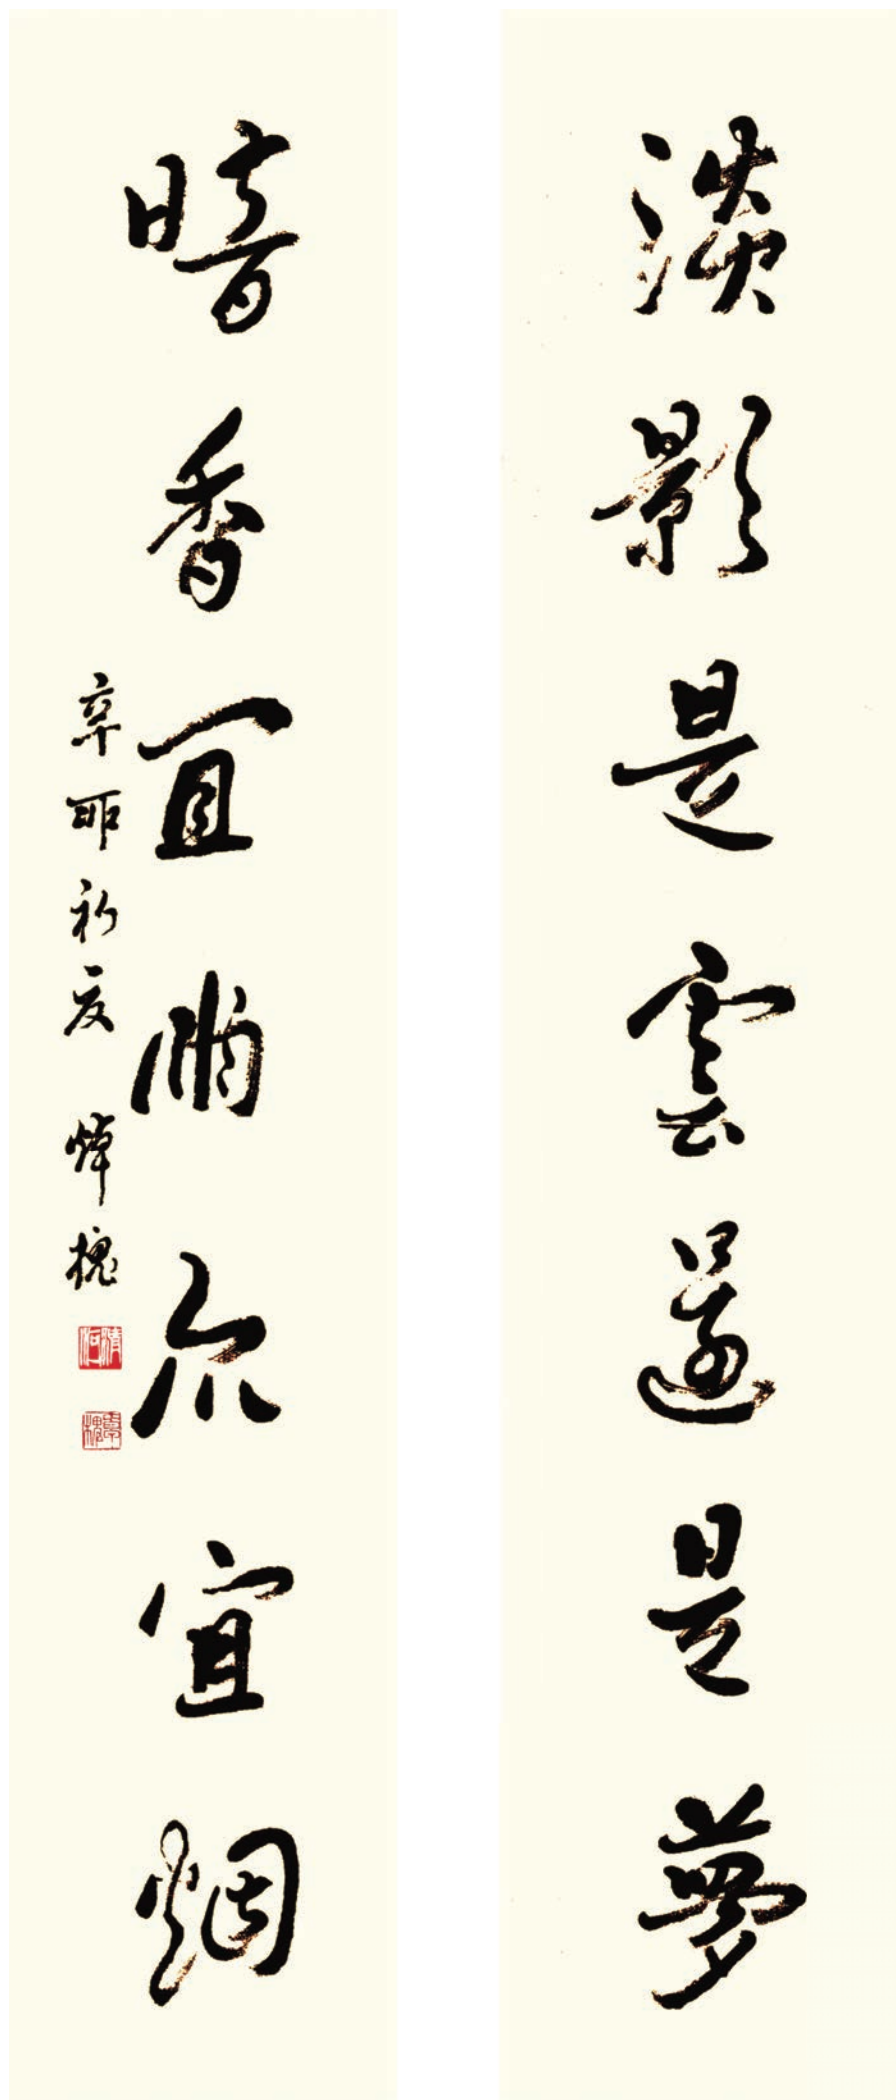 淡影是雲還是夢
暗香宜雨亦宜烟
辛卯初夏 槐